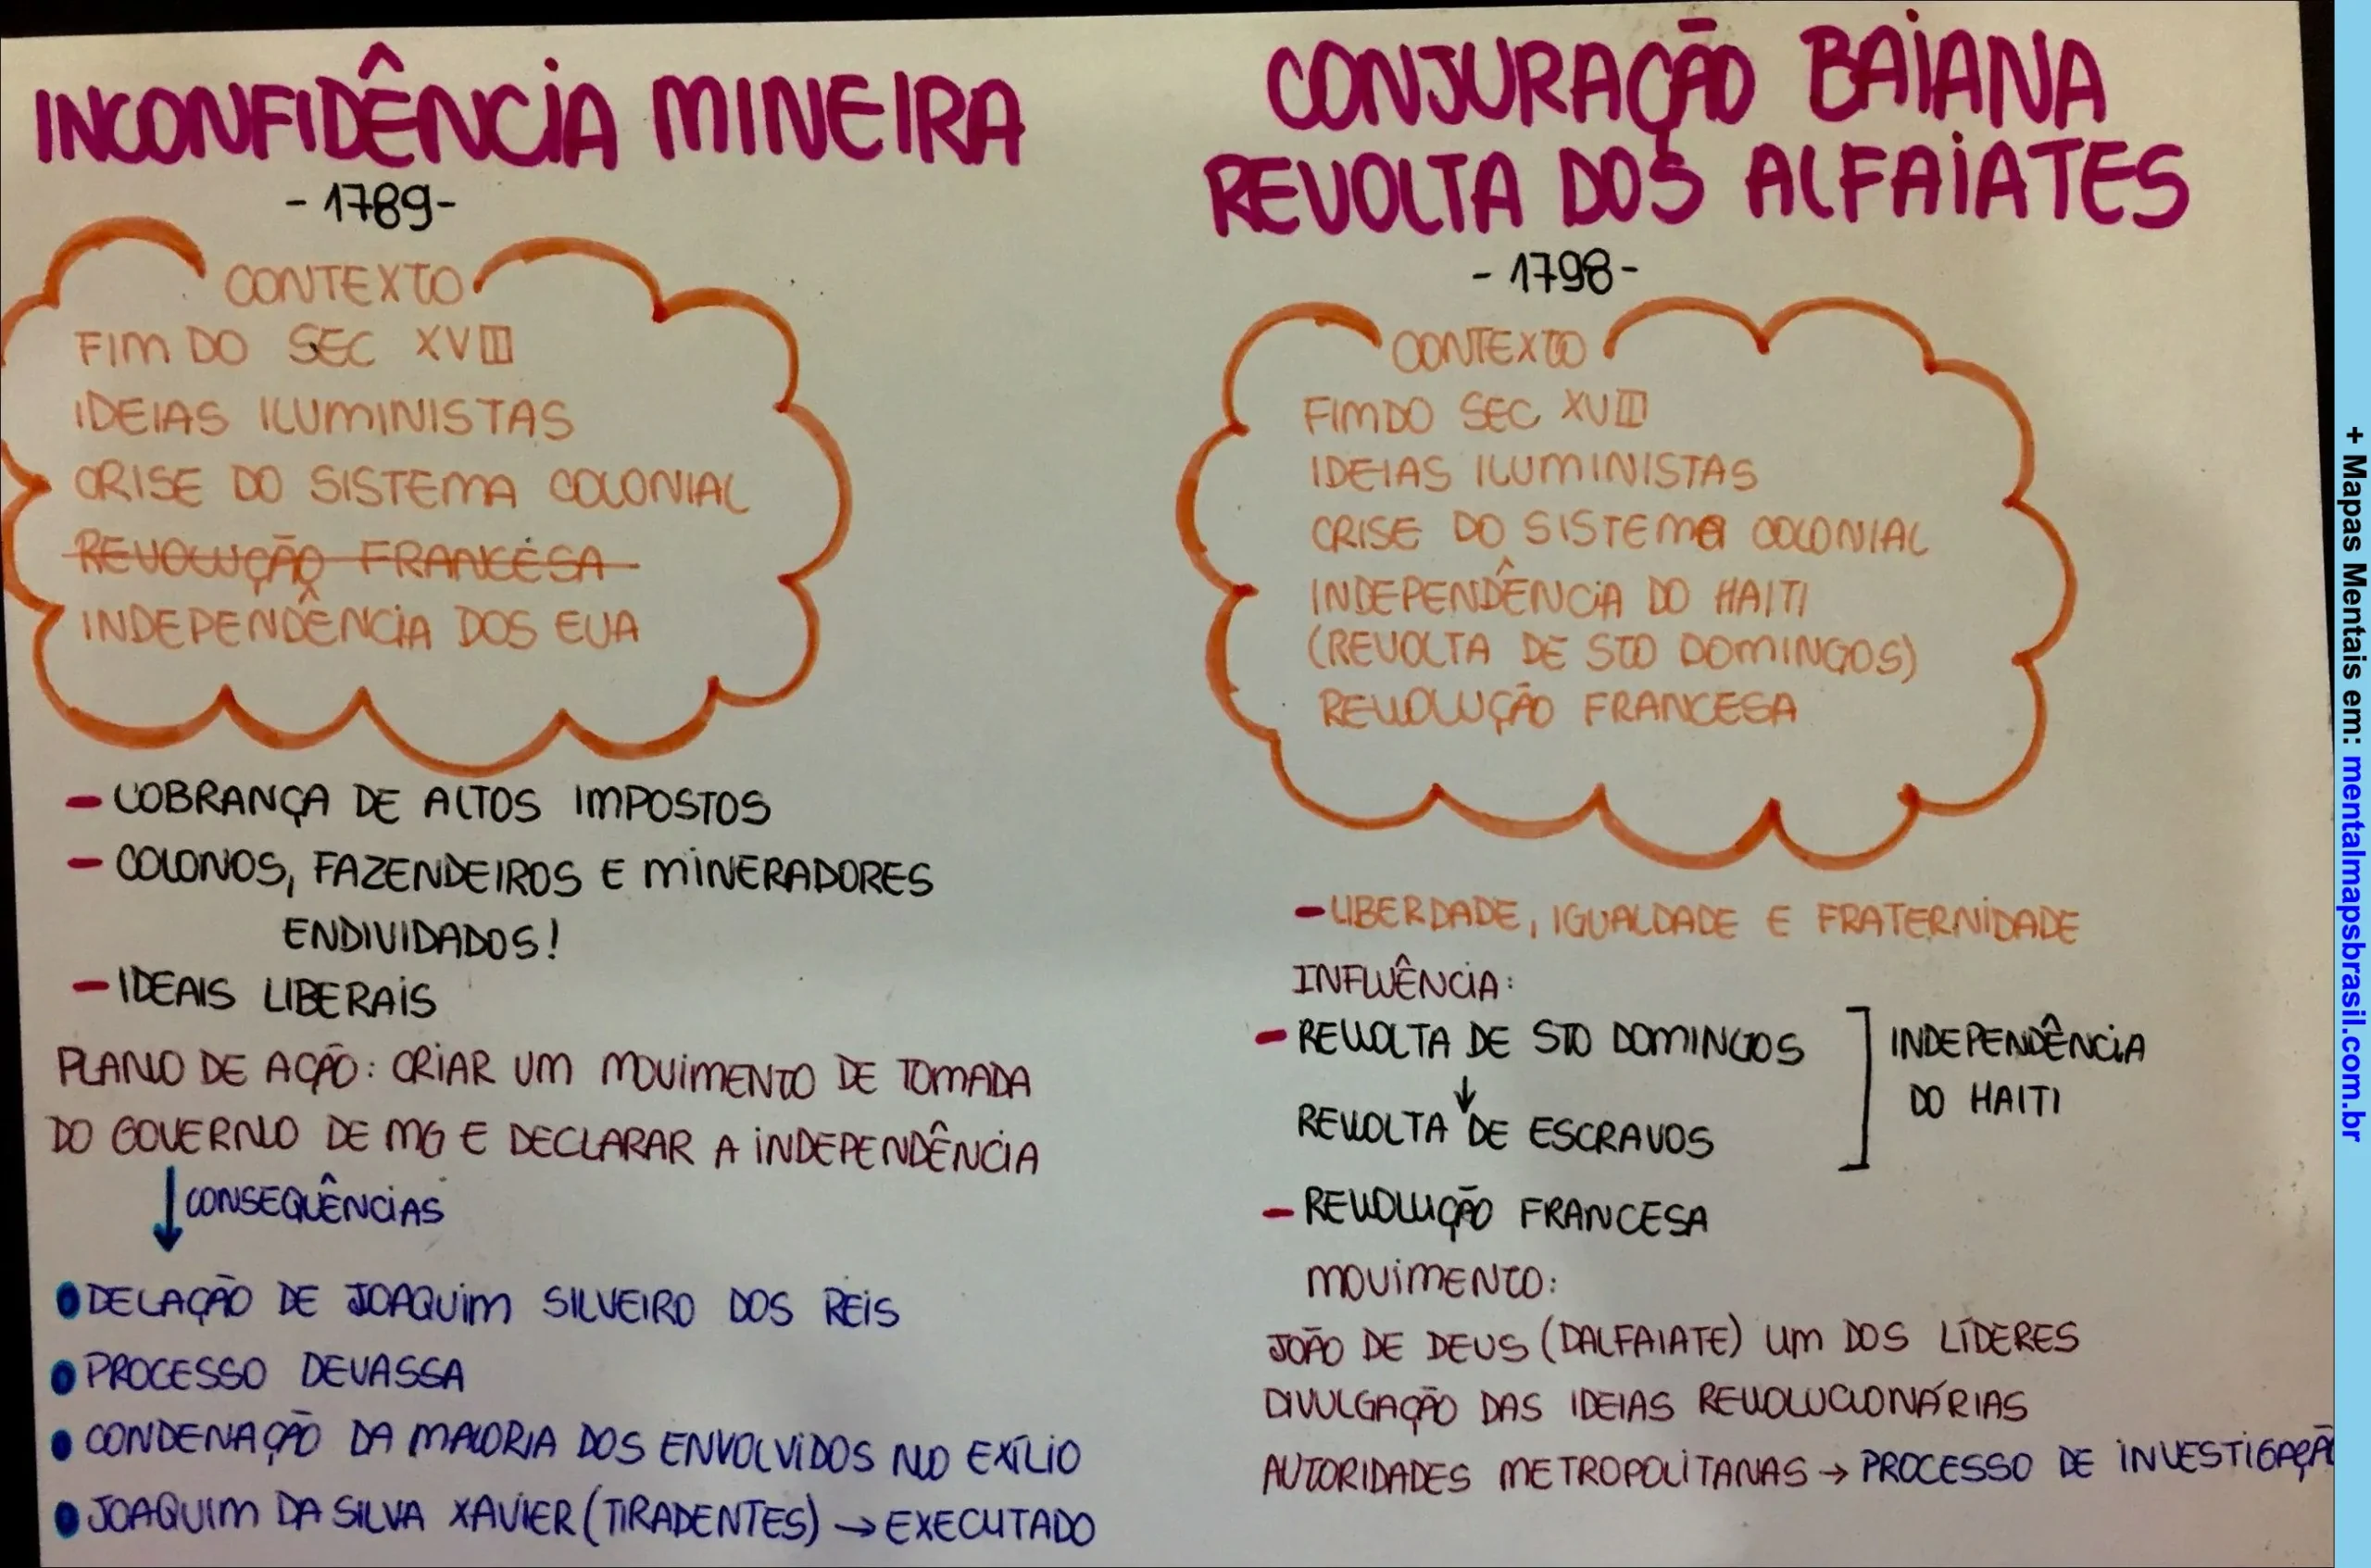 INCONFIDÊNCIA MINEIRA
- 1789 -
CONTEXTO
FIM DO SEC XVIII
IDEIAS ILUMINISTAS
CRISE DO SISTEMA COLONIAL
REVOLUÇÃO FRANCESA
INDEPENDÊNCIA DOS EUA
- COBRANÇA DE ALTOS IMPOSTOS
- COLONOS, FAZENDEIROS E MINERADORES
ENDIVIDADOS!
- IDEAIS LIBERAIS
PLANO DE AÇÃO: CRIAR UM MOVIMENTO DE TOMADA
DO GOVERNO DE MG E DECLARAR A INDEPENDÊNCIA
↓ CONSEQUÊNCIAS
• DELAÇÃO DE JOAQUIM SILVEIRO DOS REIS
• PROCESSO DEVASSA
• CONDENAÇÃO DA MAIORIA DOS ENVOLVIDOS NO EXÍLIO
• JOAQUIM DA SILVA XAVIER (TIRADENTES) → EXECUTADO
CONJURAÇÃO BAIANA
REVOLTA DOS ALFAIATES
- 1798 -
CONTEXTO
FIM DO SEC XVIII
IDEIAS ILUMINISTAS
CRISE DO SISTEMA COLONIAL
INDEPENDÊNCIA DO HAITI
(REVOLTA DE STO DOMINGOS)
REVOLUÇÃO FRANCESA
- LIBERDADE, IGUALDADE E FRATERNIDADE
INFLUÊNCIA:
- REVOLTA DE STO DOMINGOS
↓
REVOLTA DE ESCRAVOS
] INDEPENDÊNCIA
DO HAITI
- REVOLUÇÃO FRANCESA
MOVIMENTO:
JOÃO DE DEUS (DALFAIATE) UM DOS LÍDERES
DIVULGAÇÃO DAS IDEIAS REVOLUCIONÁRIAS
AUTORIDADES METROPOLITANAS → PROCESSO DE INVESTIGAÇÃO
+ Mapas Mentais em: mentalmapsbrasil.com.br